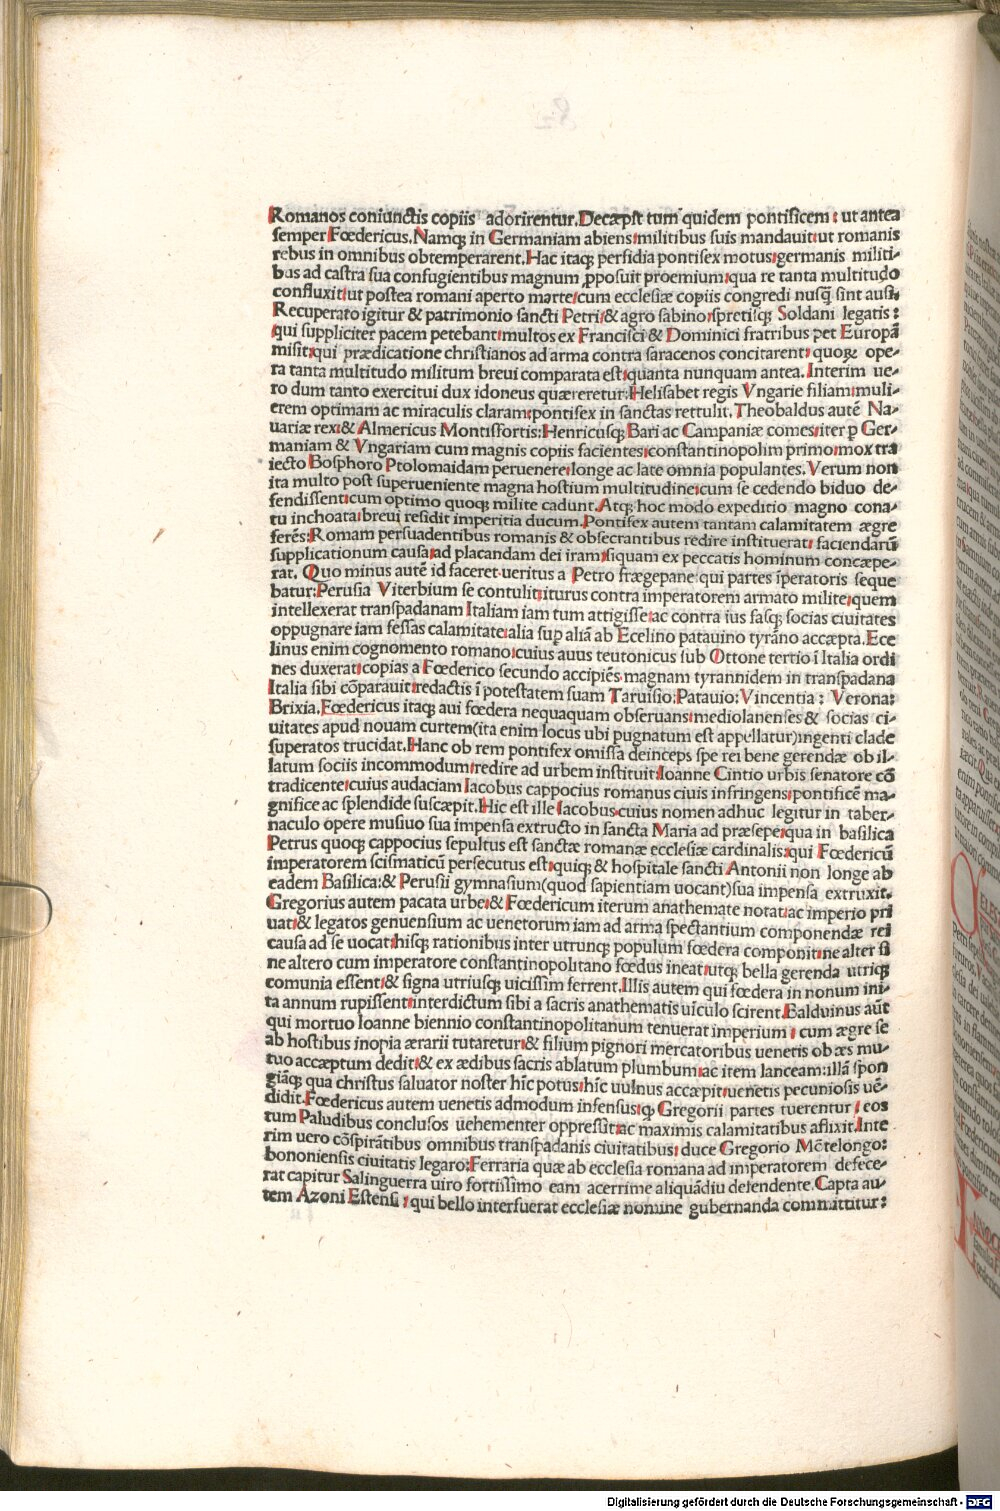 Romanos coniunctis copiis adorirentur. Decæpit tum quidem pontificem: ut antea
semper Fœdericus. Namq; in Germaniam abiens: militibus suis mandauit: ut romanis
rebus in omnibus obtemperarent. Hac itaq; perfidia pontifex motus: germanis militi-
bus ad castra sua confugientibus magnum ꝓposuit proemium: qua re tanta multitudo
confluxit: ut postea romani aperto marte: cum ecclesiæ copiis congredi nusq̃ sint ausi.
Recuperato igitur & patrimonio sancti Petri: & agro sabino: spretisq; Soldani legatis:
qui suppliciter pacem petebant: multos ex Francisci & Dominici fratribus per Europã
misit: qui prædicatione christianos ad arma contra saracenos concitarent: quoꝝ ope-
ra tanta multitudo militum breui comparata est: quanta nunquam antea. Interim ue-
ro dum tanto exercitui dux idoneus quæreretur: Helisabet regis Vngarie filiam: muli-
erem optimam ac miraculis claram: pontifex in sanctas rettulit. Theobaldus autẽ Na-
uariæ rex: & Almericus Montisfortis: Henricusq; Bari ac Campaniæ comes: iter ꝑ Ger-
maniam & Vngariam cum magnis copiis facientes: constantinopolim primo: mox tra
iecto Bosphoro Ptolomaidam peruenere: longe ac late omnia populantes. Verum non
ita multo post superueniente magna hostium multitudine: cum se cedendo biduo de-
fendissent: cum optimo quoq; milite cadunt. Atq; hoc modo expeditio magno cona-
tu inchoata: breui resîdit imperitia ducum. Pontifex autem tantam calamitatem ægre
ferẽs: Romam persuadentibus romanis & obsecrantibus redire instituerat: faciendarũ
supplicationum causa: ad placandam dei iram: siquam ex peccatis hominum concæpe-
rat. Quo minus autẽ id faceret ueritus a Petro frægepane: qui partes ĩperatoris seque
batur: Perusia Viterbium se contulit: iturus contra imperatorem armato milite: quem
intellexerat transpadanam Italiam iam tum attigisse: ac contra ius fasq; socias ciuitates
oppugnare iam fessas calamitate: alia suꝑ aliã ab Ecelino patauino tyrãno accæpta. Ece
linus enim cognomento romano: cuius auus teutonicus sub Ottone tertio ĩ Italia ordi
nes duxerat: copias a Fœderico secundo accipiẽs: magnam tyrannidem in transpadana
Italia sibi cõparauit: redactis ĩ potestatem suam Taruisio: Patauio: Vincentia: Verona:
Brixia. Fœdericus itaq; aui fœdera nequaquam obseruans: mediolanenses & socias ci-
uitates apud nouam curtem (ita enim locus ubi pugnatum est appellatur) ingenti clade
superatos trucidat. Hanc ob rem pontifex omissa deinceps spe rei bene gerendæ ob il-
latum sociis incommodum: redire ad urbem instituit: Ioanne Cintio urbis senatore cõ
tradicente: cuius audaciam Iacobus cappocius romanus ciuis infringens: pontificẽ ma-
gnifice ac splendide suscæpit. Hic est ille Iacobus: cuius nomen adhuc legitur in taber-
naculo opere musiuo sua impensa extructo in sancta Maria ad præsepe: qua in basilica
Petrus quoq; cappocius sepultus est sanctæ romanæ ecclesiæ cardinalis: qui Fœdericũ
imperatorem scismaticũ persecutus est: quiq; & hospitale sancti Antonii non longe ab
eadem Basilica: & Perusii gymnasium (quod sapientiam uocant) sua impensa extruxit.
Gregorius autem pacata urbe: & Fœdericum iterum anathemate notat: ac imperio pri
uat: & legatos genuensium ac uenetorum iam ad arma spectantium componendæ rei
causa ad se uocat: hisq; rationibus inter utrunq; populum fœdera componit: ne alter si
ne altero cum imperatore constantinopolitano fœdus ineat: utq; bella gerenda utriq;
comunia essent: & signa utriusq; uicissim ferrent. Illis autem qui fœdera in nonum ini-
ta annum rupissent: interdictum sibi a sacris anathematis uĩculo scirent. Balduinus aũt
qui mortuo Ioanne biennio constantinopolitanum tenuerat imperium: cum ægre se
ab hostibus inopia ærarii tutaretur: & filium pignori mercatoribus uenetis ob æs mu-
tuo accæptum dedit: & ex ædibus sacris ablatum plumbum: ac item lanceam: illã spon
giãq; qua christus saluator noster hĩc potus: hĩc uulnus accæpit: uenetis pecuniosis uẽ-
didit. Fœdericus autem uenetis admodum infensus: q; Gregorii partes tuerentur: eos
tum Paludibus conclusos uehementer oppressit: ac maximis calamitatibus aflixit. Inte
rim uero cõspirãtibus omnibus transpadanis ciuitatibus: duce Gregorio Mõtelongo:
bononiensis ciuitatis legato: Ferraria quæ ab ecclesia romana ad imperatorem defece-
rat capitur Salinguerra uiro fortissimo eam acerrime aliquãdiu defendente. Capta au-
tem Azoni Estensi: qui bello interfuerat ecclesiæ nomine gubernanda committitur:
Digitalisierung gefördert durch die Deutsche Forschungsgemeinschaft - DFG